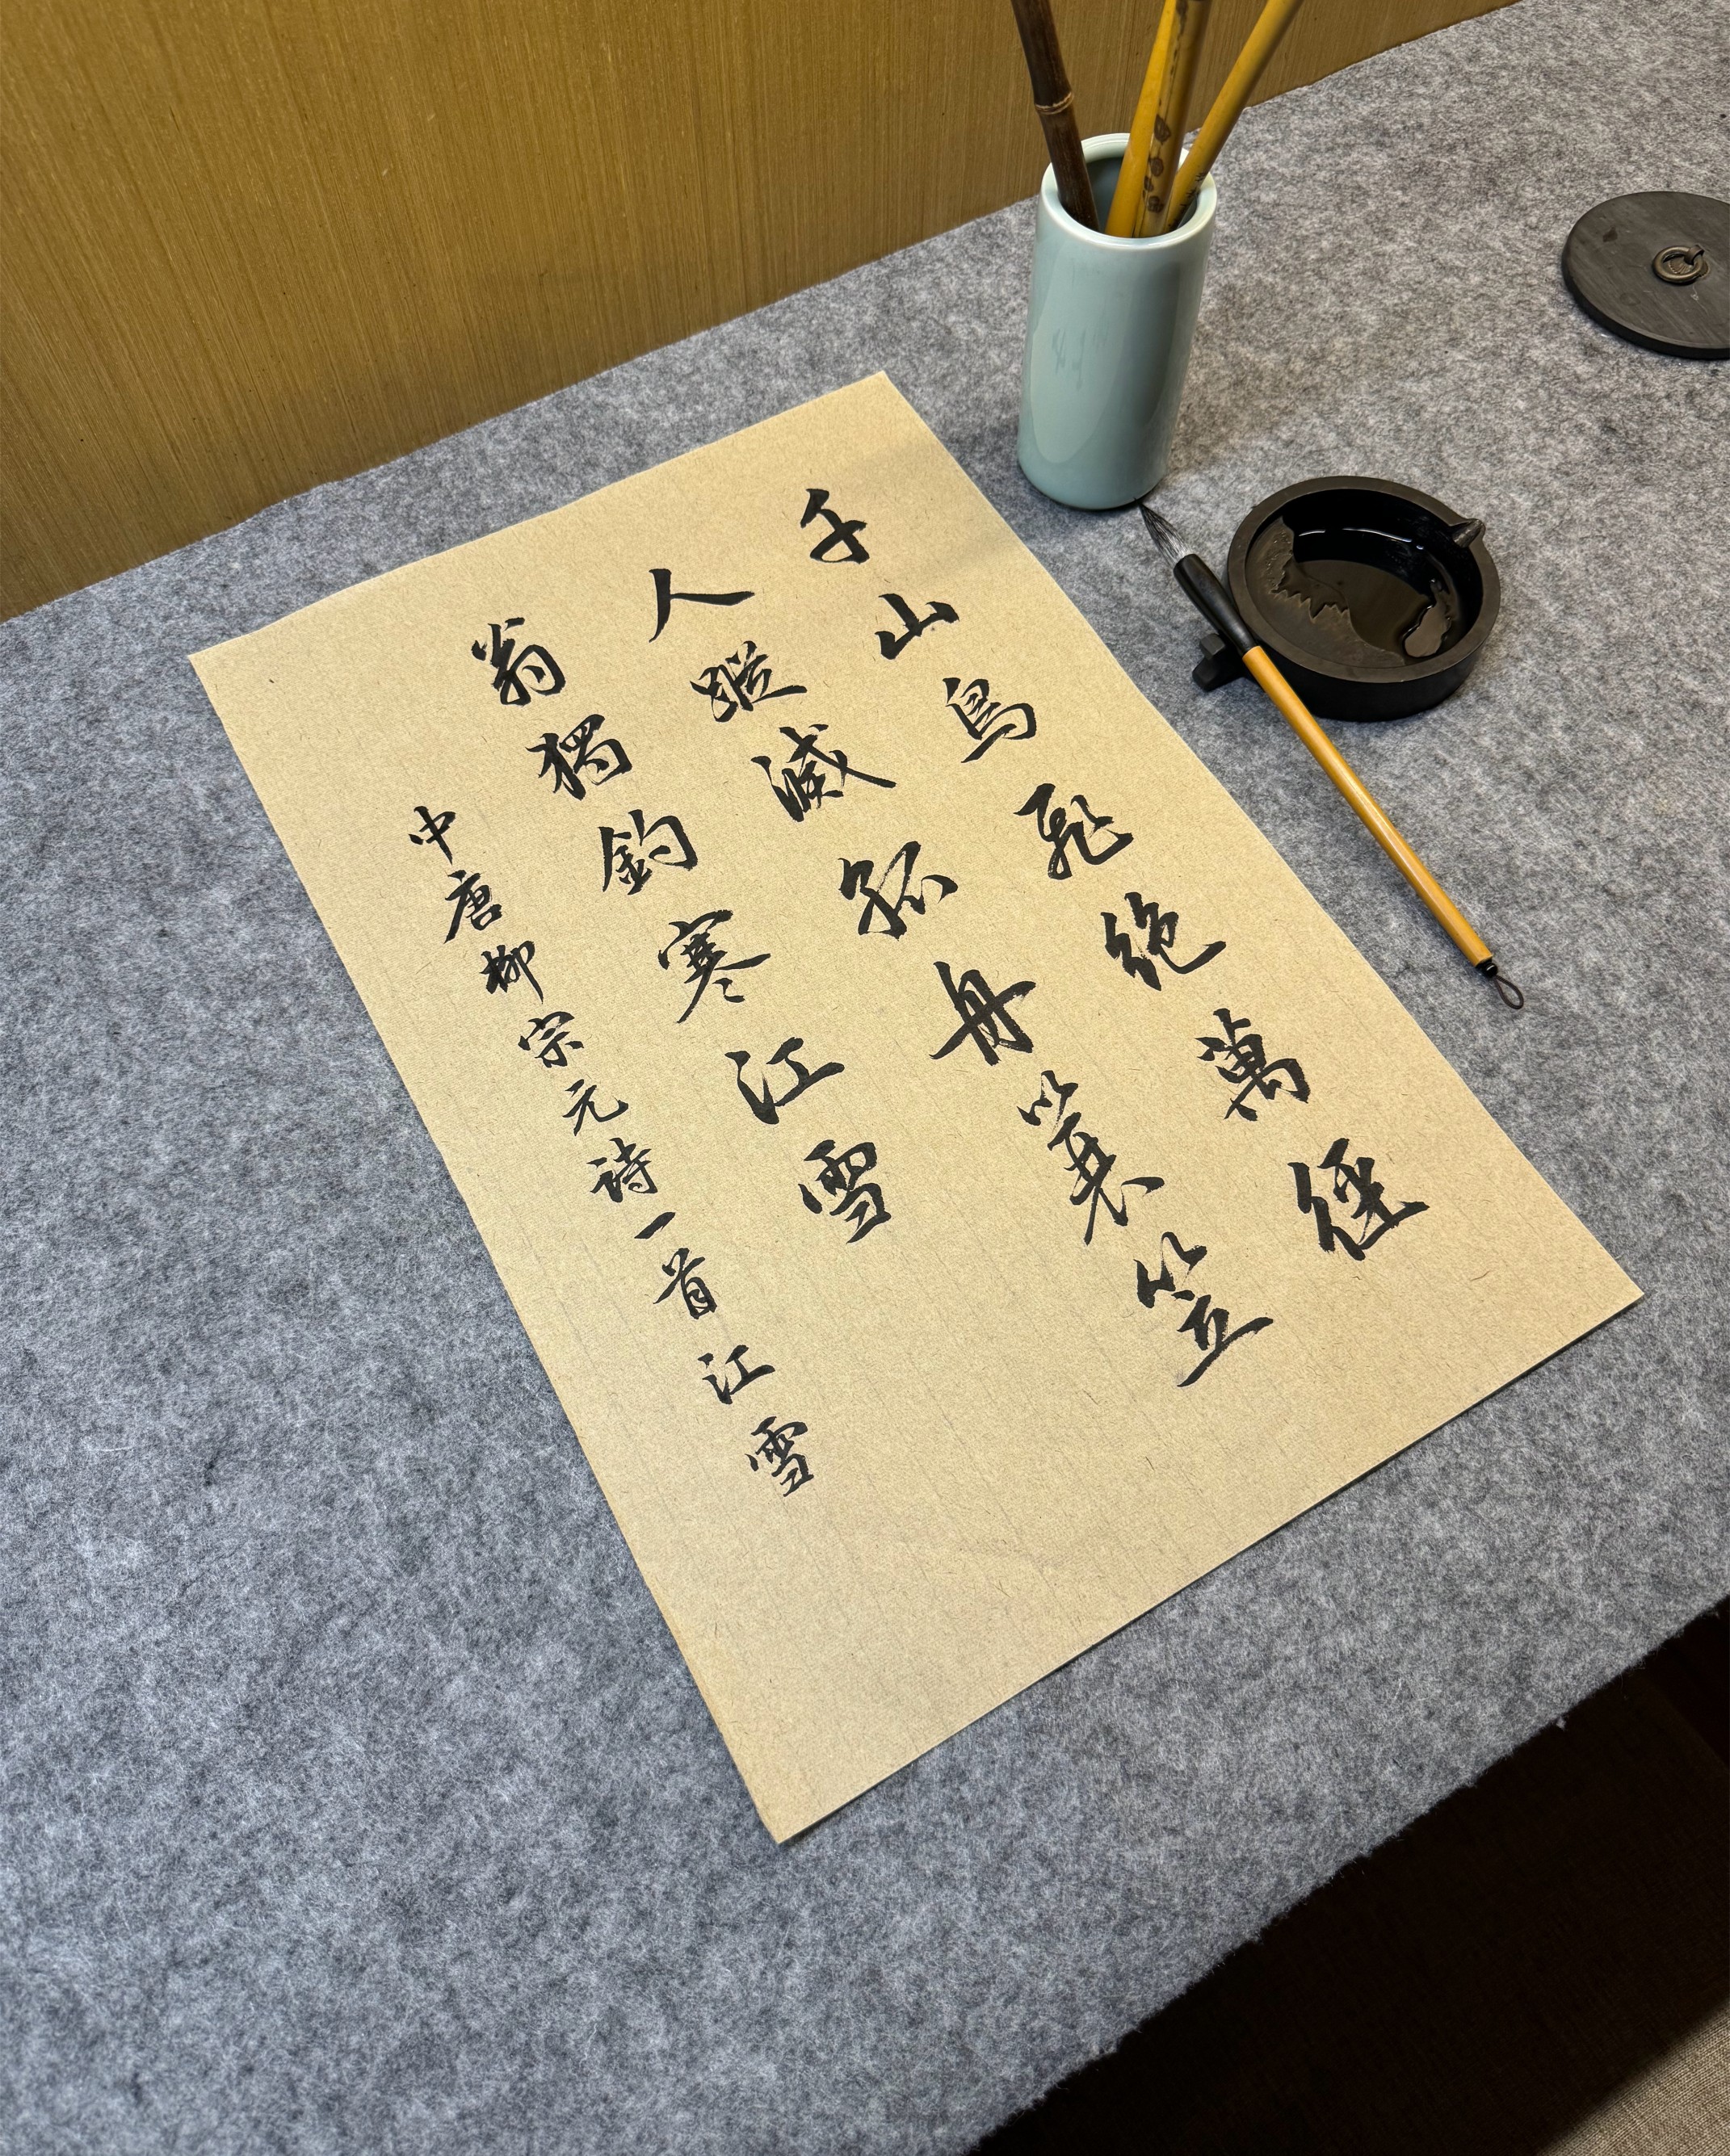 千山鳥飛絕萬徑
人蹤滅孤舟蓑笠
翁獨釣寒江雪
中唐柳宗元詩一首江雪